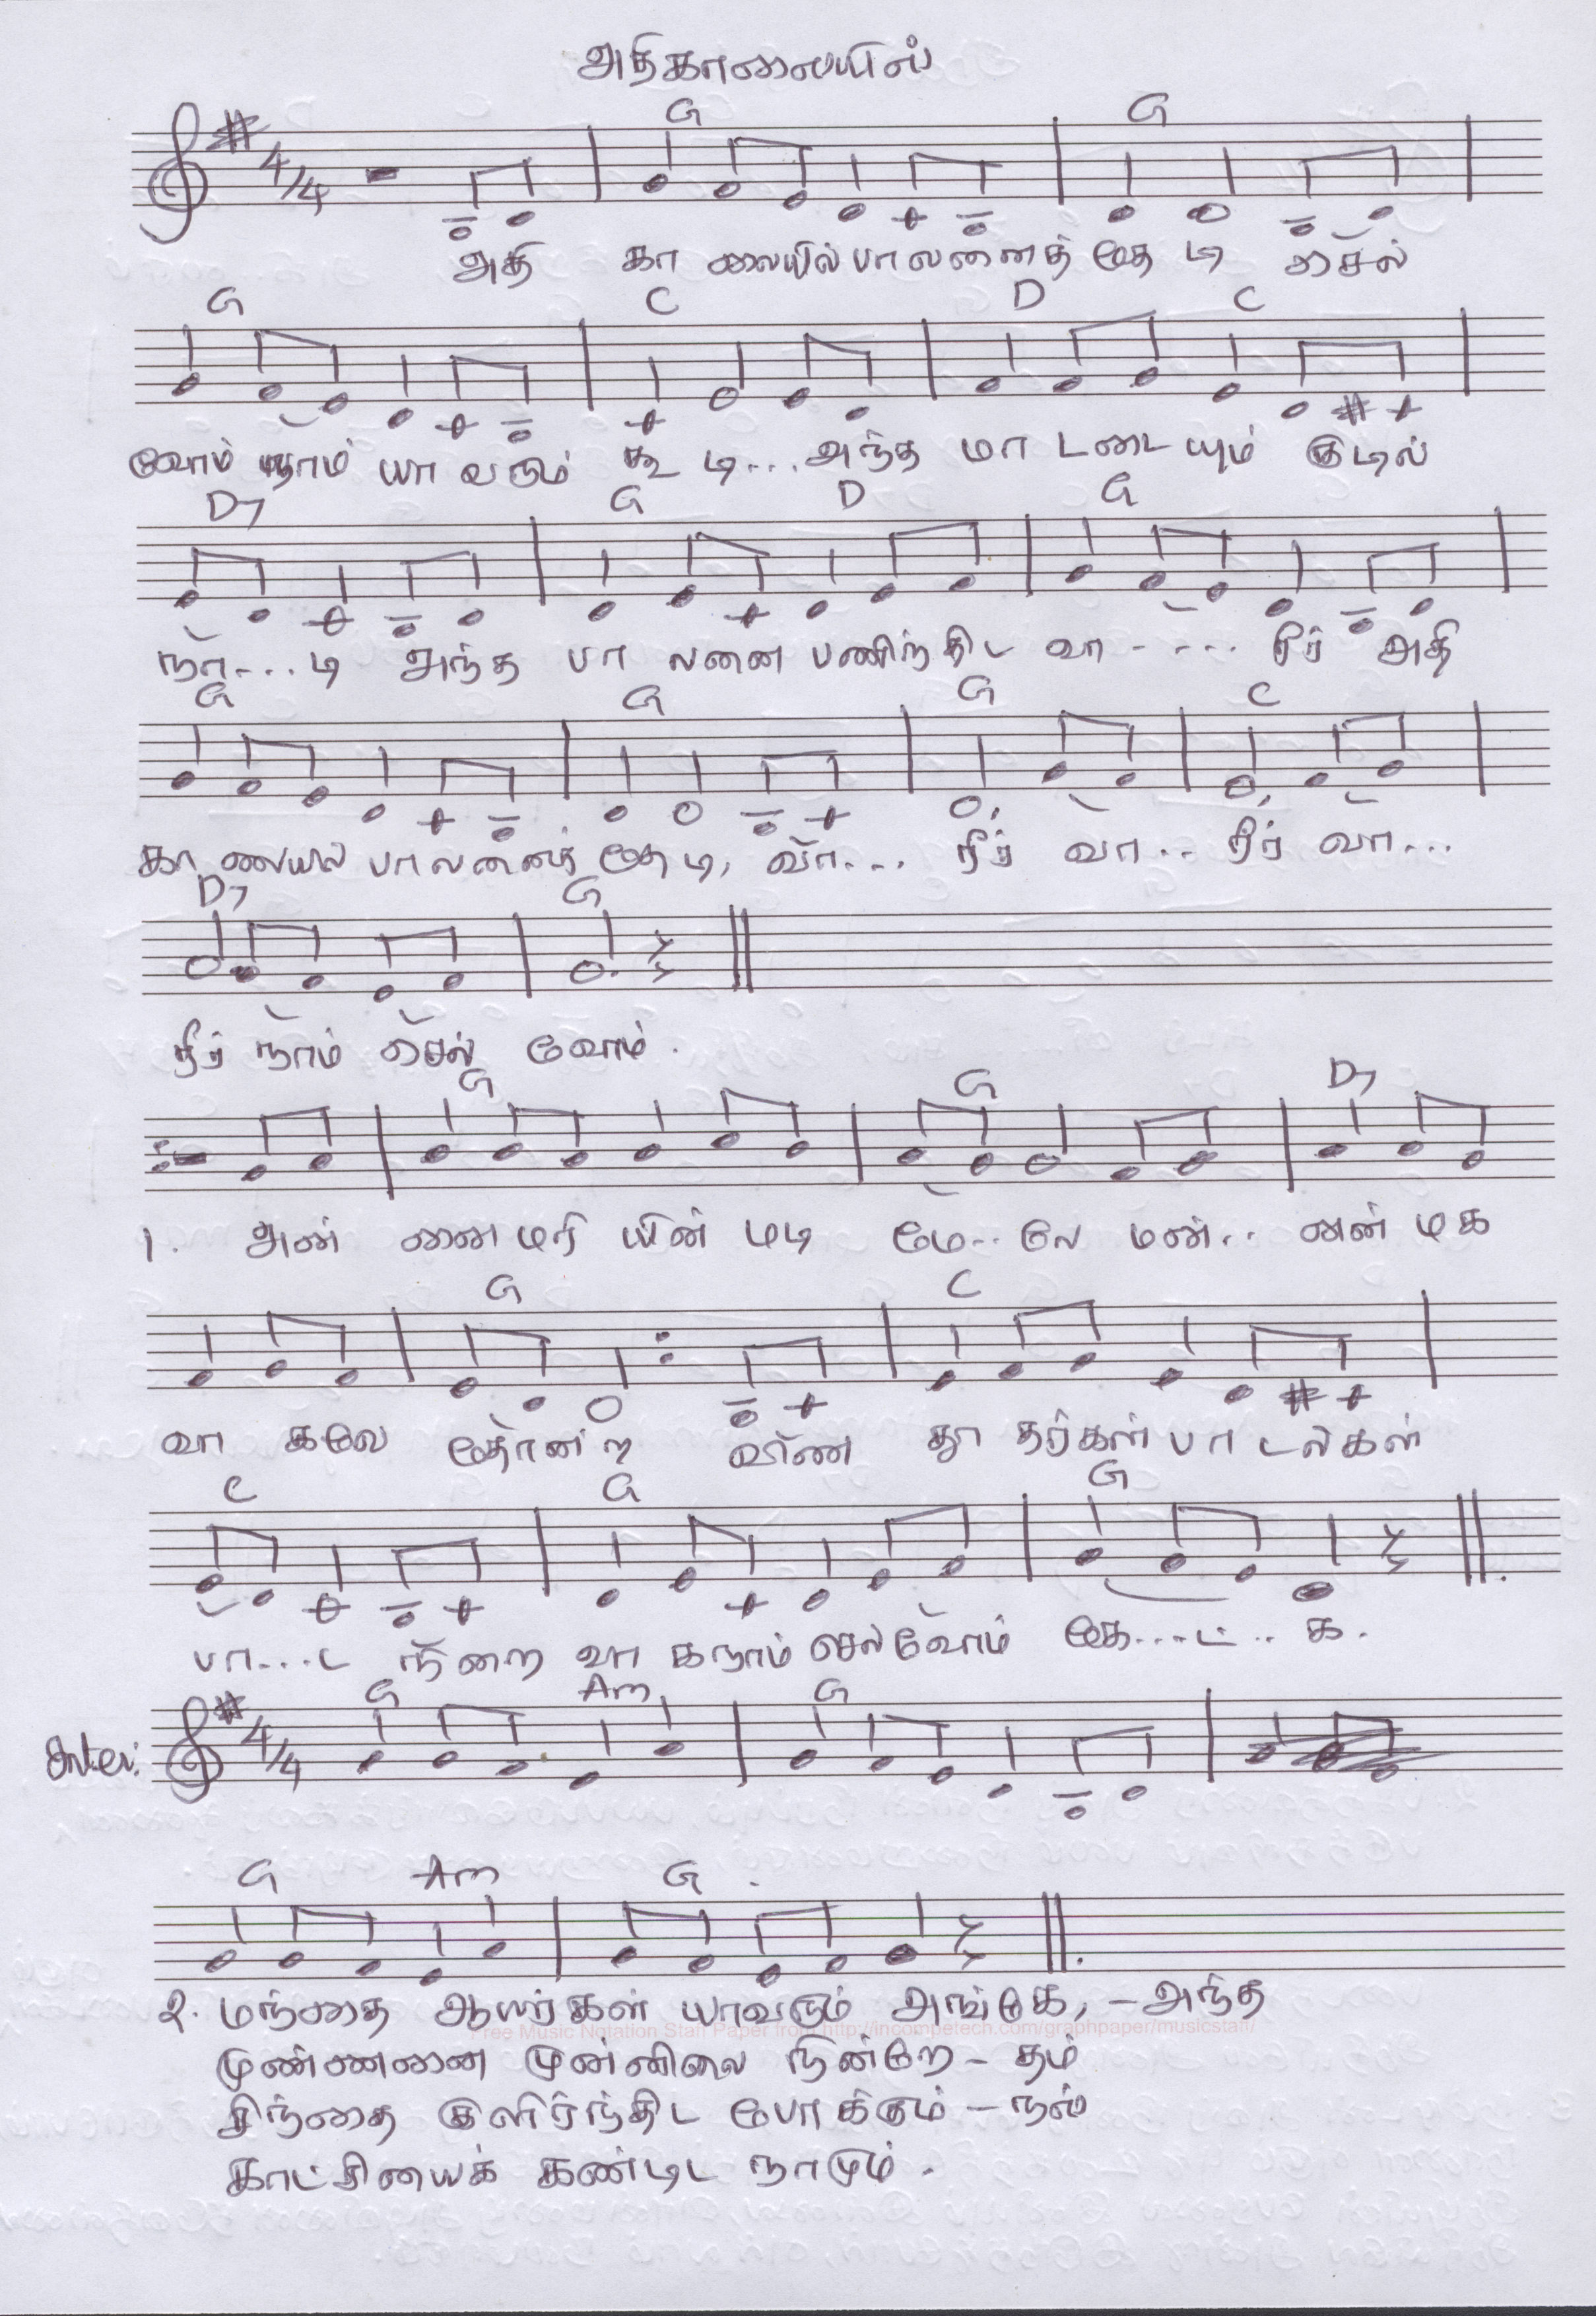 அதிகாலையில்
4/4
G G
அதி கா லையில் பாலனைத் தே டி செல்
G C D C
வோம் நாம் யா வரும் கூ டி... அந்த மா டடை யும் குடில்
D7 G D G
நா... டி அந்த பா லனை பணிந்திட வா - - - - ரீர் அதி
G G G C
கா லையில் பாலனைத் தே டி, வா... ரீர் வா.. ரீர் வா...
D7 G
ரீர் நாம் செல் வோம்.
G G D7
1. அன் னை மரி யின் மடி மே.. லே மன்.. னன் மக
G C
வா கவே தோன்ற விண் தூ தர்கள் பா டல்கள்
C G G
பா...ட நிறை வா க நாம் செல்வோம் கே....ட்.. க.
G Am G
Inter: 4/4
G Am G
2. மந்தை ஆயர்கள் யாவரும் அங்கே, - அந்த
Free Music Notation Staff Paper from http://incompetech.com/graphpaper/musicstaff/
முன்னணை முன்னிலை நின்றே - தம்
சிந்தை குளிர்ந்திட போக்கும் - நல்
காட்சியைக் கண்டிட நாமும்.